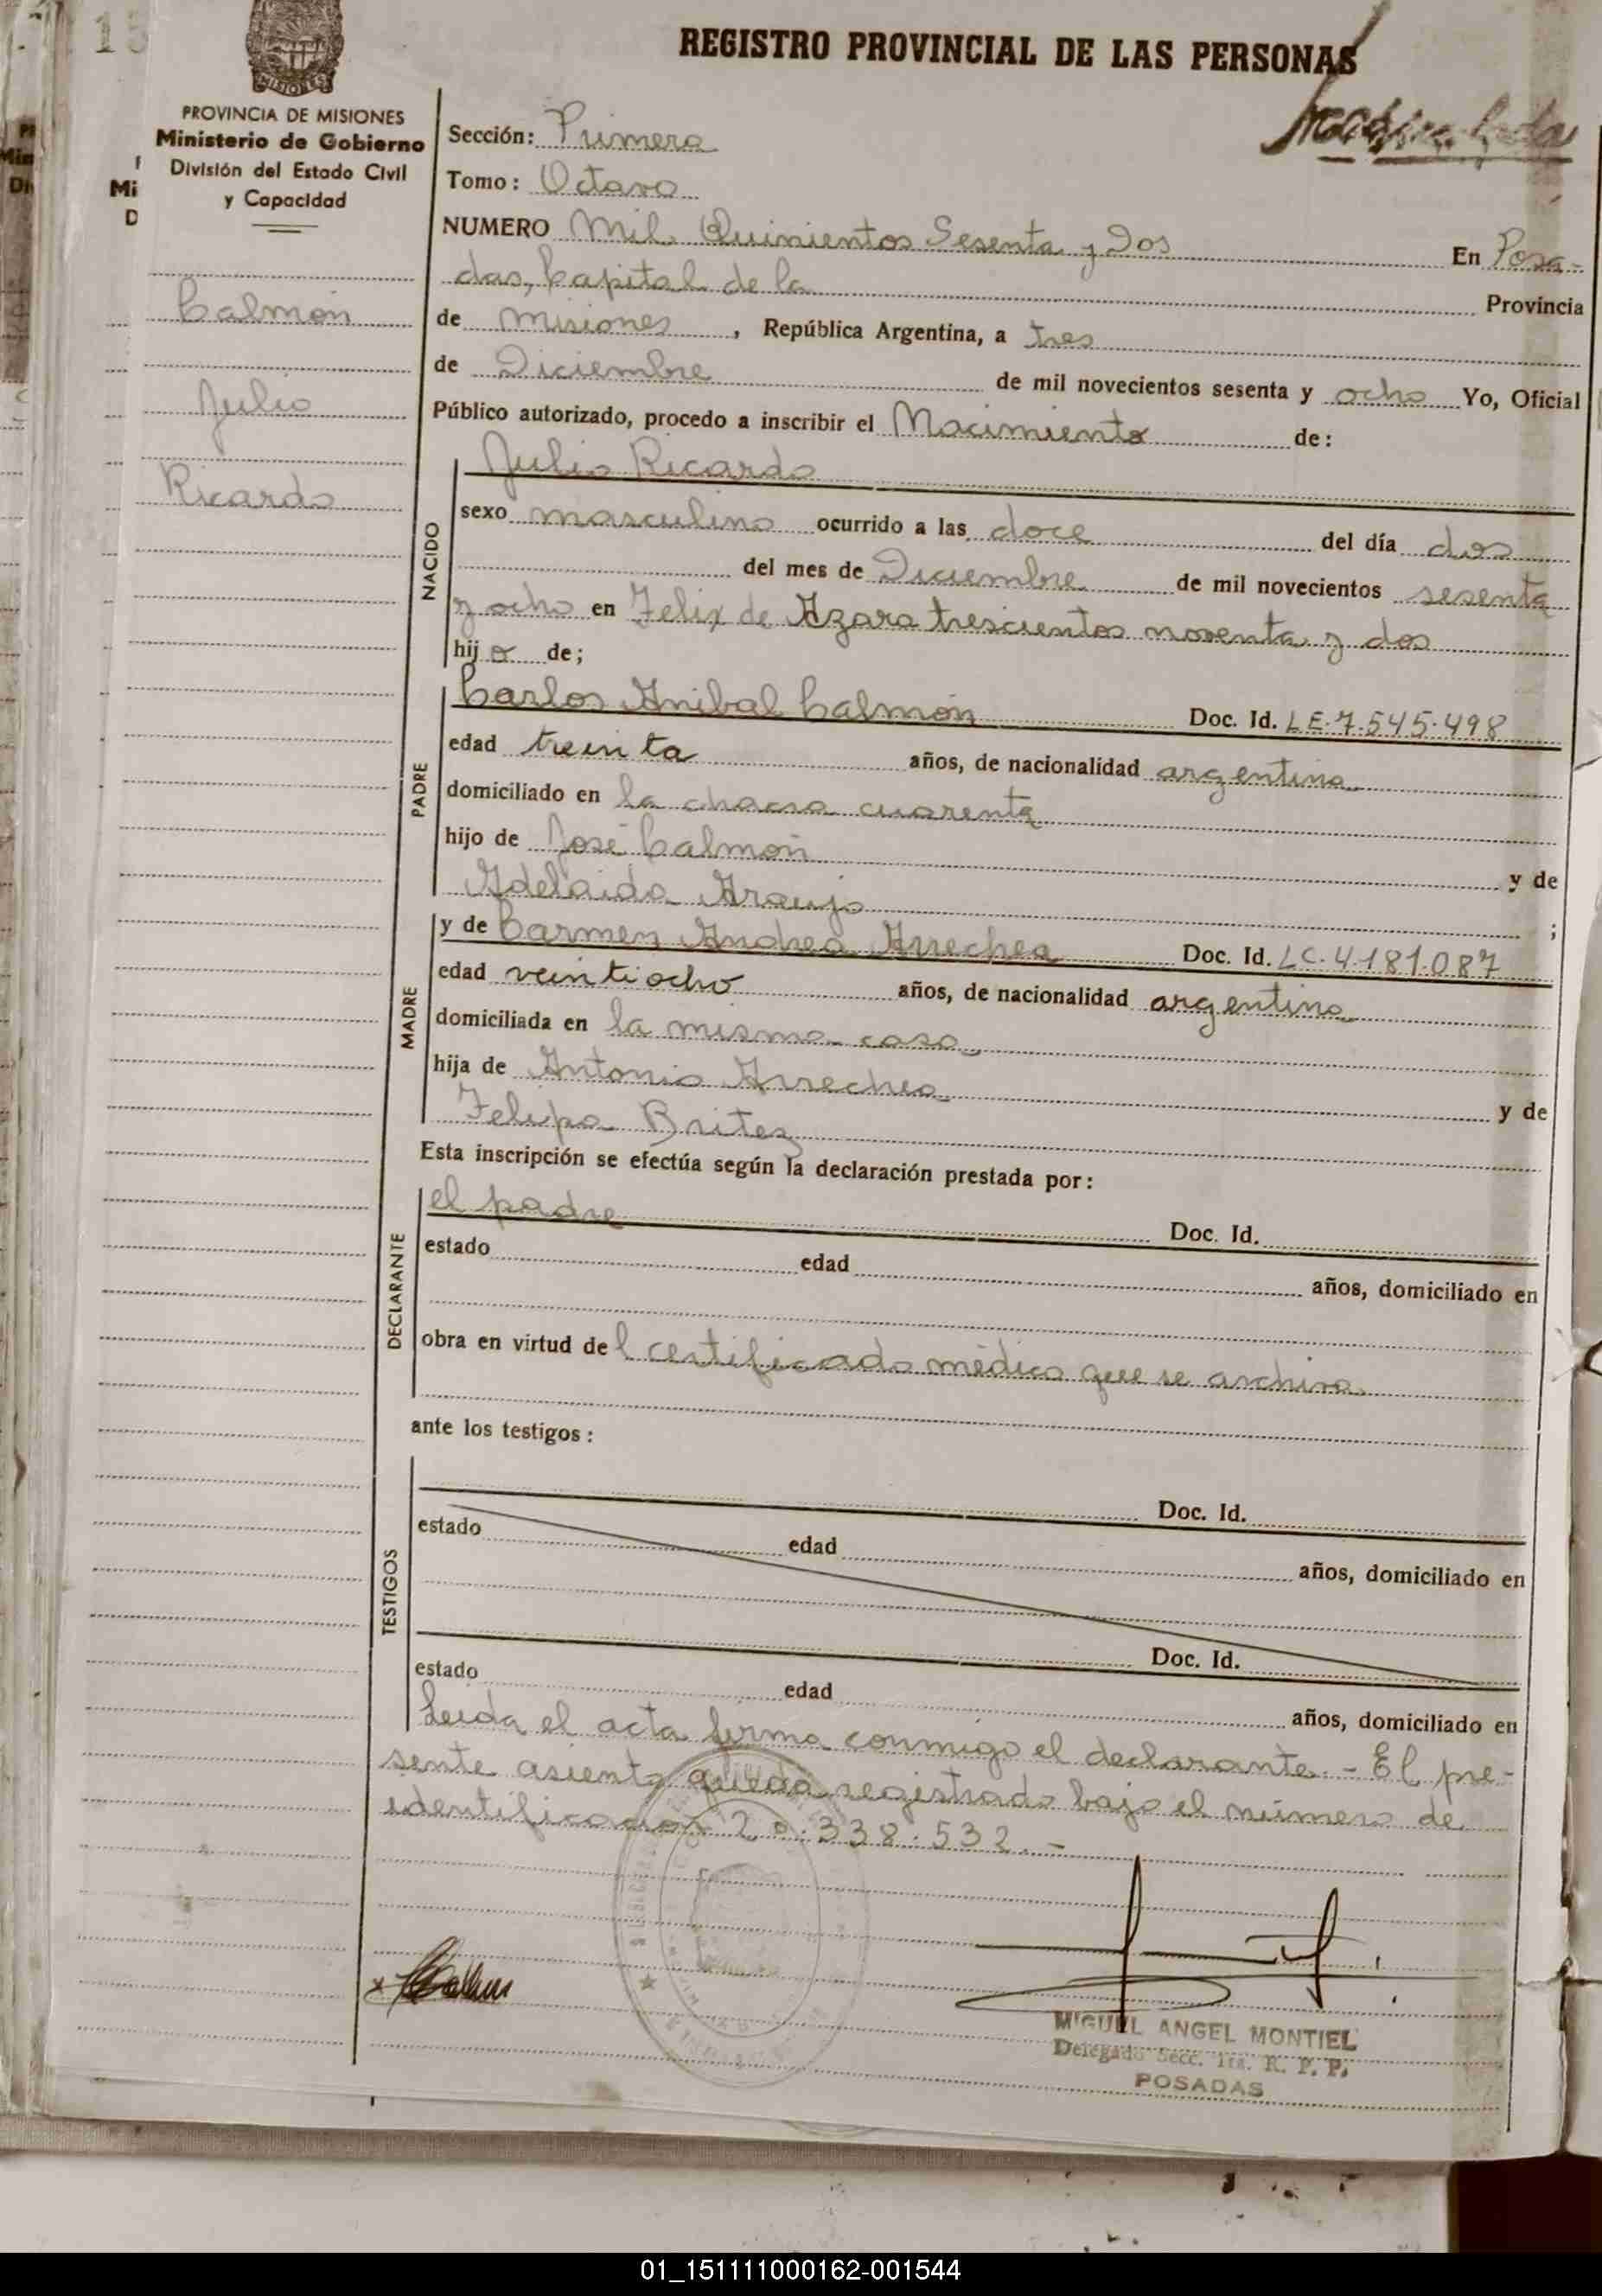 REGISTRO PROVINCIAL DE LAS PERSONAS
MISIONES
PROVINCIA DE MISIONES
Ministerio de Gobierno
División del Estado Civil
y Capacidad
Calmon
Julio
Ricardo
Sección: Primera
Tomo: Octavo
NUMERO Mil Quinientos Sesenta y Dos En Posa-
das, Capital de la Provincia
de Misiones, República Argentina, a tres
de Diciembre de mil novecientos sesenta y ocho Yo, Oficial
Público autorizado, procedo a inscribir el Nacimiento de:
NACIDO
Julio Ricardo
sexo masculino ocurrido a las doce del día dos
del mes de Diciembre de mil novecientos sesenta
y ocho en Felix de Azara trescientos noventa y dos
hijo de;
PADRE
Carlos Anibal Calmon Doc. Id. LE.7.545.498
edad treinta años, de nacionalidad argentina
domiciliado en la chacra cuarenta
hijo de José Calmon y de
Adelaida Araujo ;
MADRE
y de Carmen Andrea Arrechea Doc. Id. LC.4.181.087
edad veintiocho años, de nacionalidad argentina
domiciliada en la misma casa
hija de Antonio Arrechea y de
Felipa Britez
Esta inscripción se efectúa según la declaración prestada por:
DECLARANTE
el padre Doc. Id.
estado edad años, domiciliado en
obra en virtud del certificado médico que se archiva
ante los testigos:
TESTIGOS
Doc. Id.
estado edad años, domiciliado en
Doc. Id.
estado edad años, domiciliado en
Leida el acta firma conmigo el declarante.- El pre-
sente asiento queda registrado bajo el número de
identificacion 20.338.532.-
MIGUEL ANGEL MONTIEL
Delegado Secc. 1ra. R. P. P.
POSADAS
01_151111000162-001544